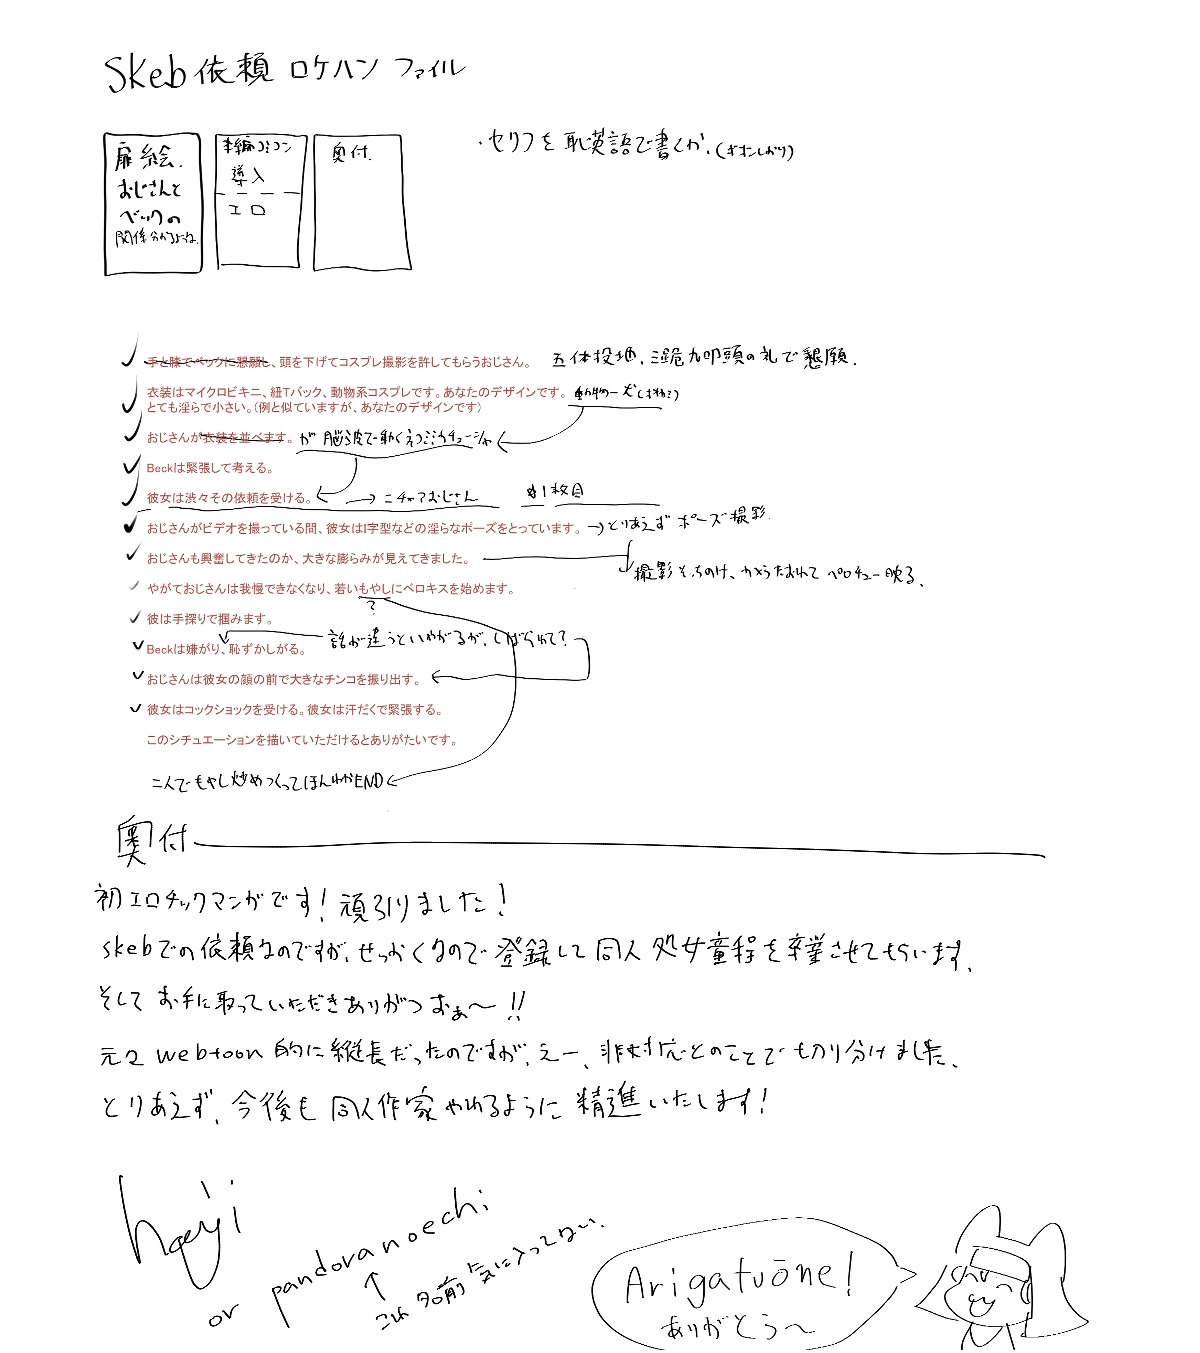 Skeb依頼 ロケハン ファイル
扉絵.
おじさんと
ベックの
関係分かるように
導入
エロ
奥付.
・セリフを恥英語で書くか.
手と膝でベックに懇願し、頭を下げてコスプレ撮影を許してもらうおじさん。 五体投地、三跪九叩頭の礼で懇願.
衣装はマイクロビキニ、紐Tバック、動物系コスプレです。あなたのデザインです。
とても淫らで小さい。(例と似ていますが、あなたのデザインです)
おじさんが衣装を並べます。 が 脳波で動くネコミミカチューシャ
Beckは緊張して考える。
彼女は渋々その依頼を受ける。 → ニチャアおじさん 1枚目
おじさんがビデオを撮っている間、彼女はI字型などの淫らなポーズをとっています。 →とりあえず ポーズ撮影.
おじさんも興奮してきたのか、大きな膨らみが見えてきました。
撮影そっちのけ、カメラたおれて ベロチュー映る.
やがておじさんは我慢できなくなり、若いもやしにベロキスを始めます。
?
彼は手探りで掴みます。
話が違うといやがるが、しばられて?
Beckは嫌がり、恥ずかしがる。
おじさんは彼女の顔の前で大きなチンコを振り出す。
彼女はコックショックを受ける。彼女は汗だくで緊張する。
このシチュエーションを描いていただけるとありがたいです。
二人でもやし炒めつくってほんわかEND
奥付
初エロチックマンガです! 頑張りました!
skebでの依頼なのですが、せっかくなので登録して同人処女童程を卒業させてもらいます.
そして お手に取っていただきありがつおぁ〜!!
元々 webtoon的に縦長だったのですが、えー、非対応とのことで切り分けました.
とりあえず、今後も同人作家やれるように精進いたします!
haeji
or pandoranoechi
↑
この名前気に入ってない.
Arigatuōne!
ありがとう〜